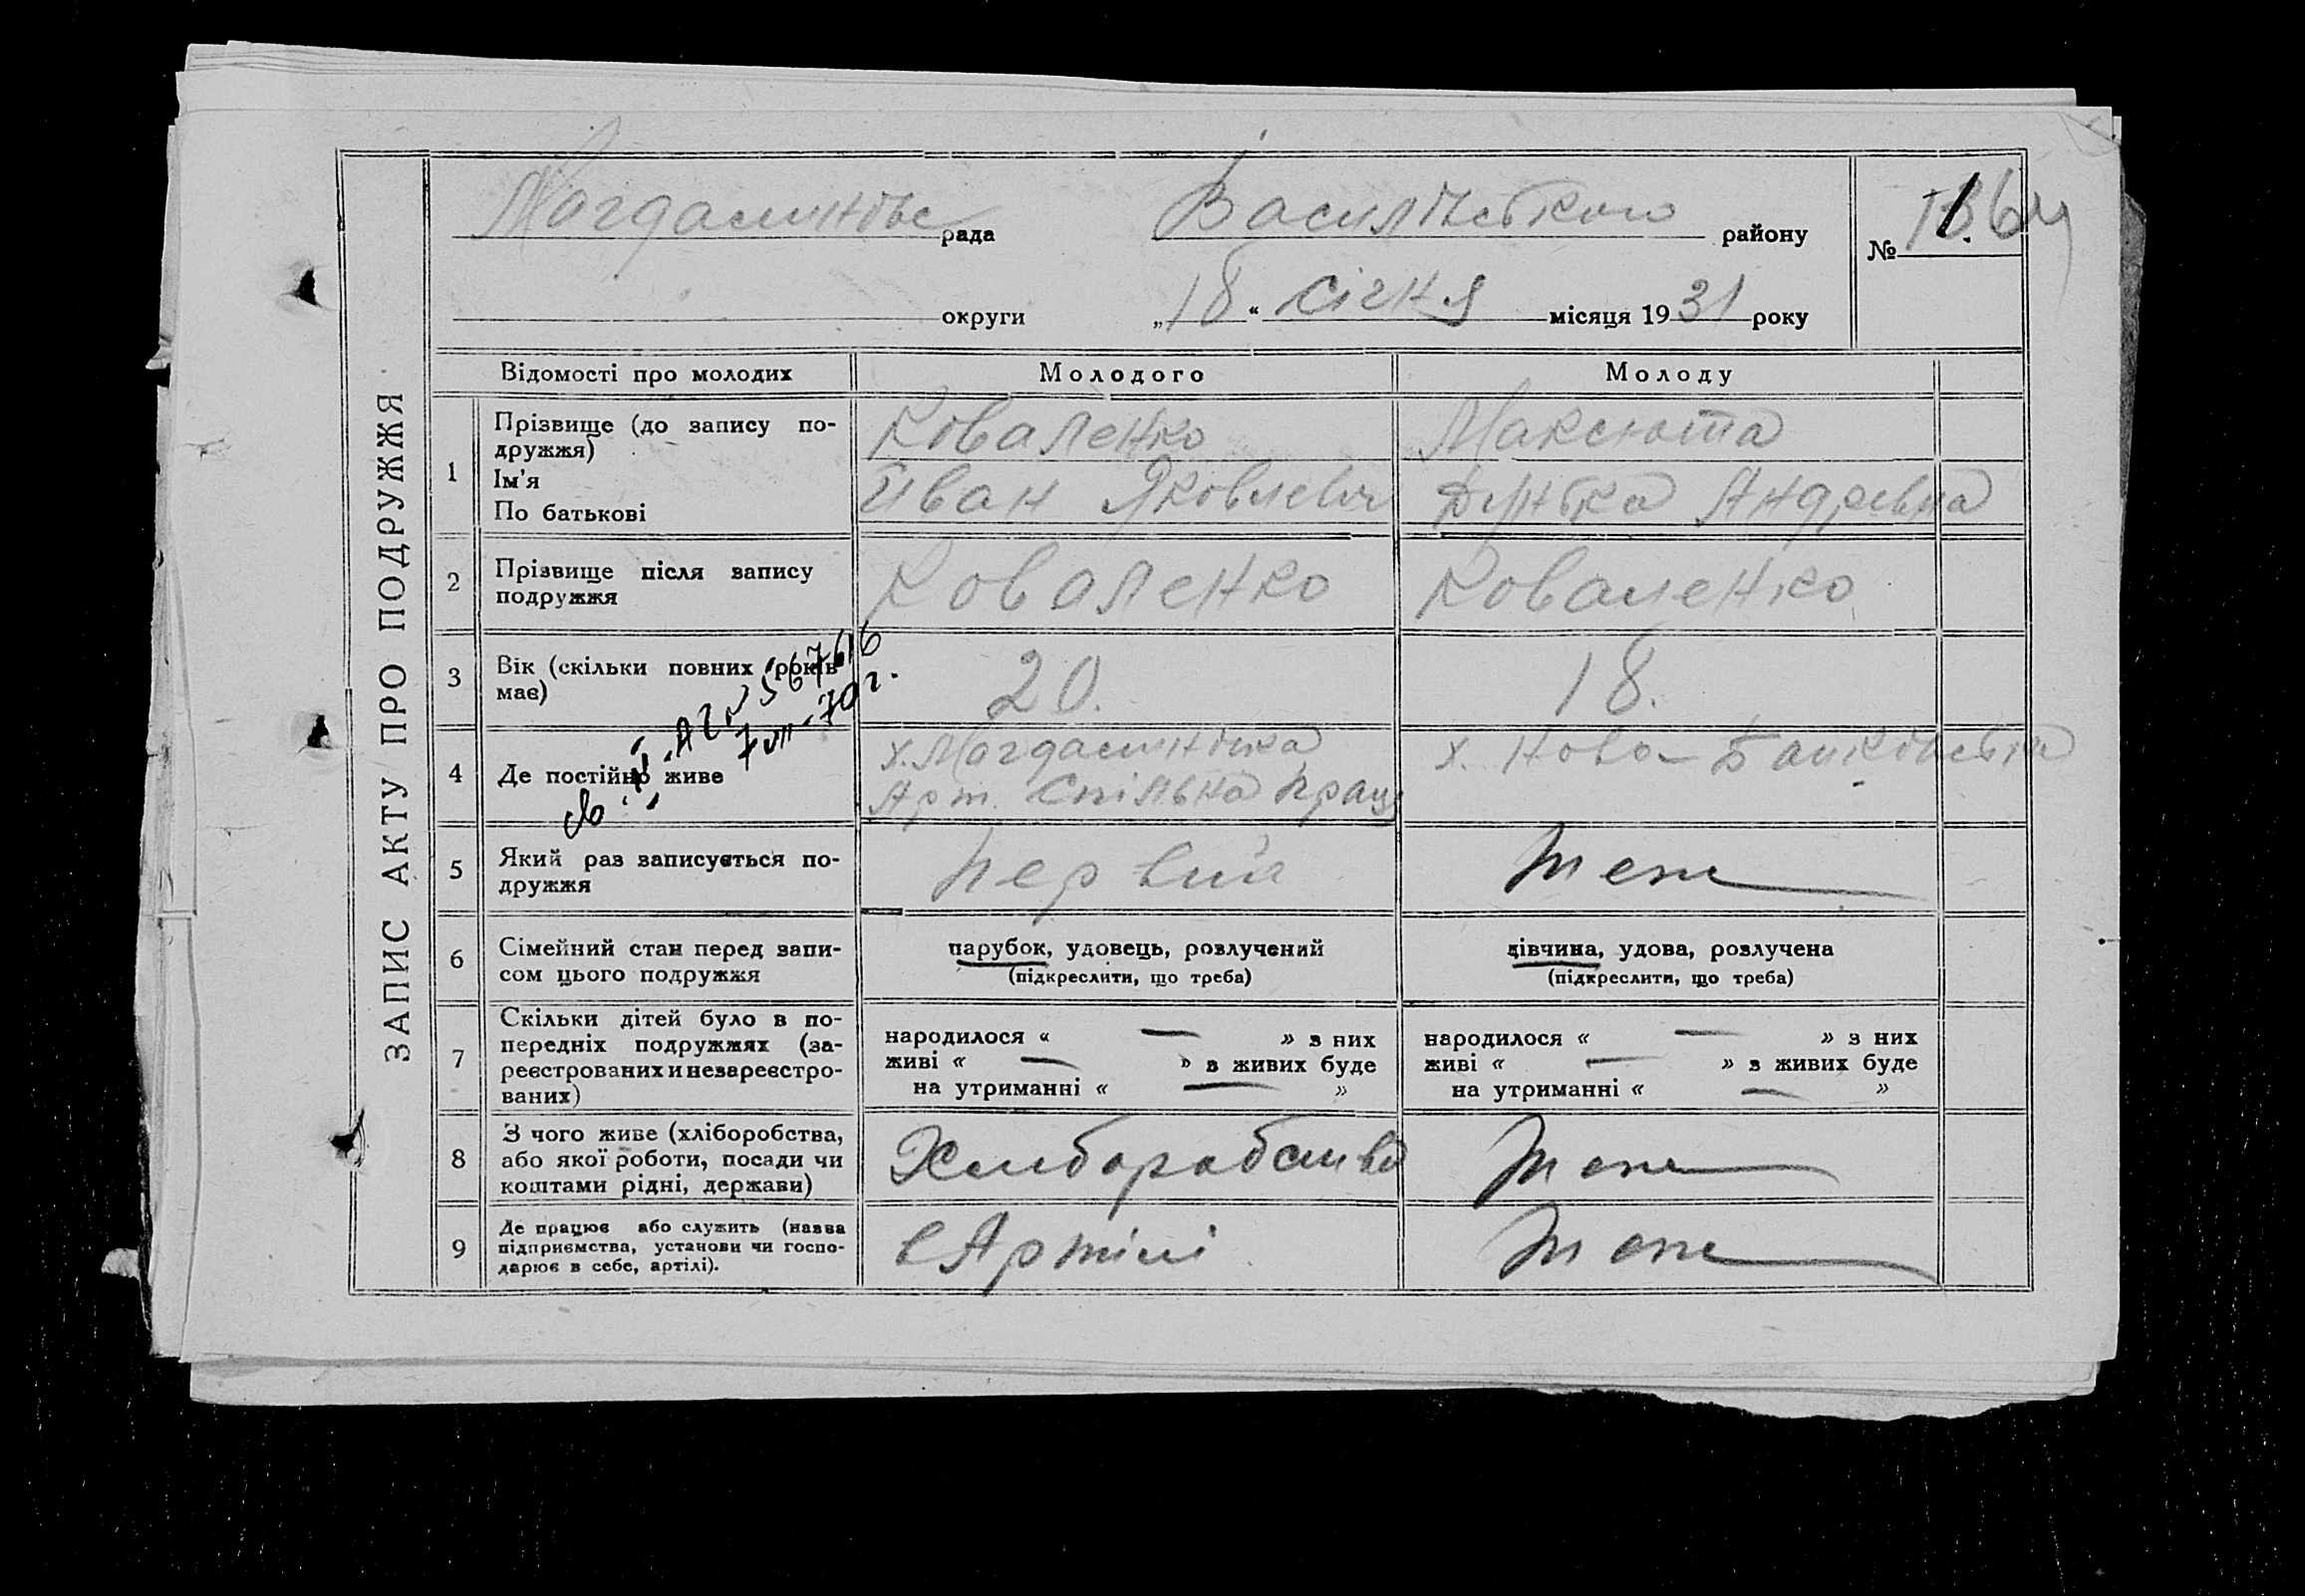 ЗАПИС АКТУ ПРО ПОДРУЖЖЯ
Магдалинівс рада Василівського району №
округи „18“ січня місяця 1931 року
Відомості про молодих Молодого Молоду
1 Прізвище (до запису по-
дружжя)
Коваленко Максюта
Ім'я
По батькові
Іван Яковлевич Дунька Андревна
2 Прізвище після запису
подружжя
Коваленко Коваленко
3 Вік (скільки повних років
має)
20. 18.
4 Де постійно живе
х. Магдалинівка х. Ново-
Арт. Спілька праці
5 Який раз записується по-
дружжя
первий тоже
6 Сімейний стан перед запи-
сом цього подружжя
парубок, удовець, розлучений дівчина, удова, розлучена
(підкреслити, що треба) (підкреслити, що треба)
7 Скільки дітей було в по-
передніх подружжях (за-
реєстрованих и незареєстро-
ваних)
народилося « — » з них народилося « — » з них
живі « — » з живих буде живі « — » з живих буде
на утриманні « — » на утриманні « — »
8 З чого живе (хліборобства,
або якої роботи, посади чи
коштами рідні, держави)
Хлиборобство тоже
9 Де працює або служить (назва
підприємства, установи чи госпо-
дарює в себе, артілі).
в Артілі тоже